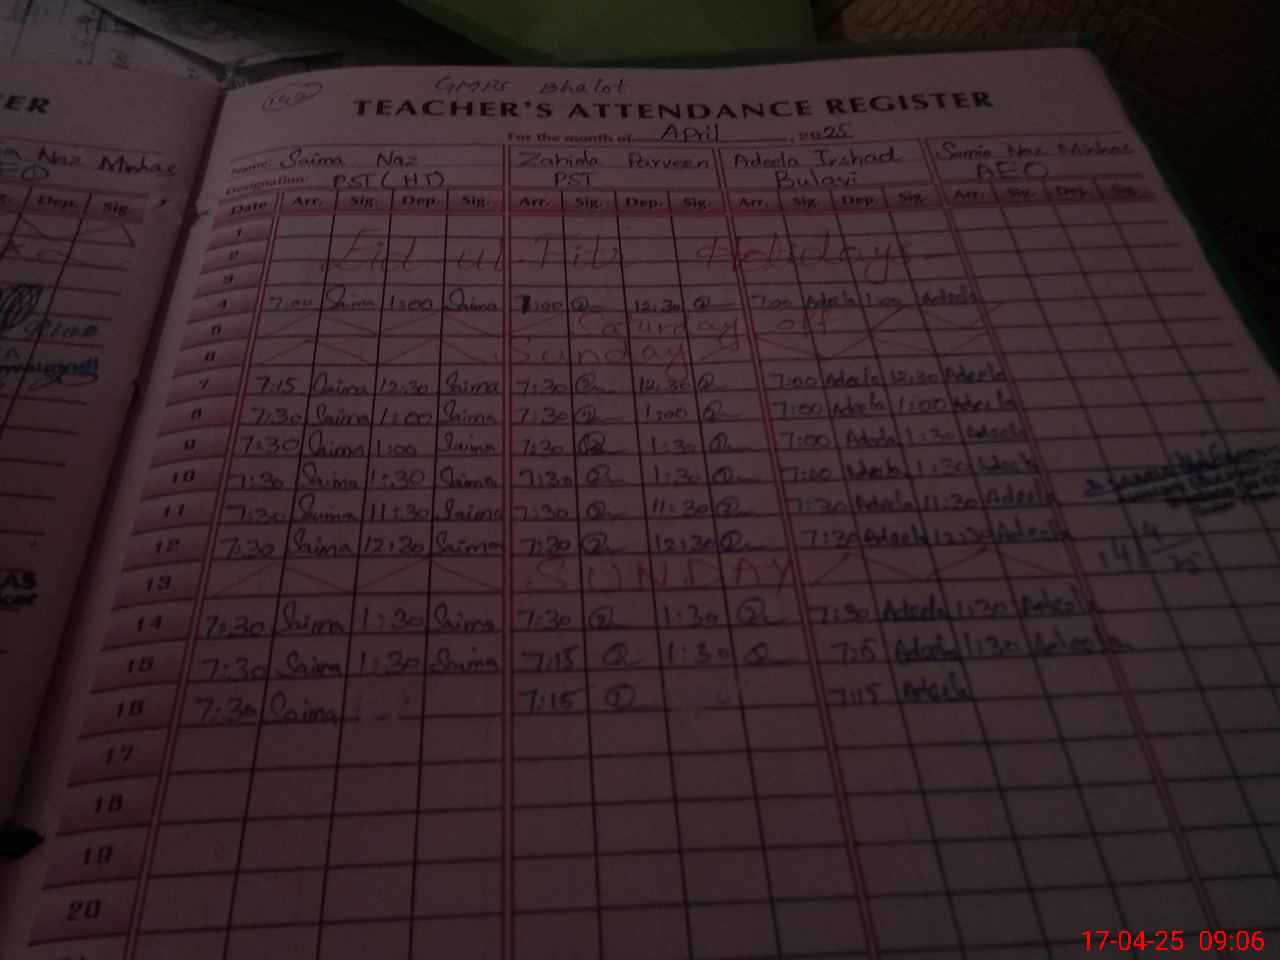 GMPS Bhalot
TEACHER'S ATTENDANCE REGISTER
For the month of April, 2025
Name: Saima Naz Zahida Parveen Adeela Irshad Samia Naz Minhas
Designation: PST (HT) PST Bulavi AEO
Date Arr. Sig. Dep. Sig. Arr. Sig. Dep. Sig. Arr. Sig. Dep. Sig. Arr. Sig. Dep. Sig.
1
2 Eid ul Fitr Holidays
3
4 7:00 Saima 1:00 Saima 7:00 12:30 7:00 Adeela 1:00 Adeela
5 Saturday off
6 Sunday
7 7:15 Saima 12:30 Saima 7:30 12:30 7:00 Adeela 12:30 Adeela
8 7:30 Saima 1:00 Saima 7:30 1:00 7:00 Adeela 1:00 Adeela
9 7:30 Saima 1:00 Saima 7:30 1:30 7:00 Adeela 1:30 Adeela
10 7:30 Saima 1:30 Saima 7:30 1:30 7:00 Adeela 1:30 Adeela
11 7:30 Saima 11:30 Saima 7:30 11:30 7:30 Adeela 11:30 Adeela
12 7:30 Saima 12:30 Saima 7:30 12:30 7:30 Adeela 12:30 Adeela
13 SUNDAY
14 7:30 Saima 1:30 Saima 7:30 1:30 7:30 Adeela 1:30 Adeela
15 7:30 Saima 1:30 Saima 7:15 1:30 7:15 Adeela 1:30 Adeela
16 7:30 Saima 7:15 7:15 Adeela
17
18
19
20
ER
Naz Minhas
Dep. Sig.
17-04-25 09:06